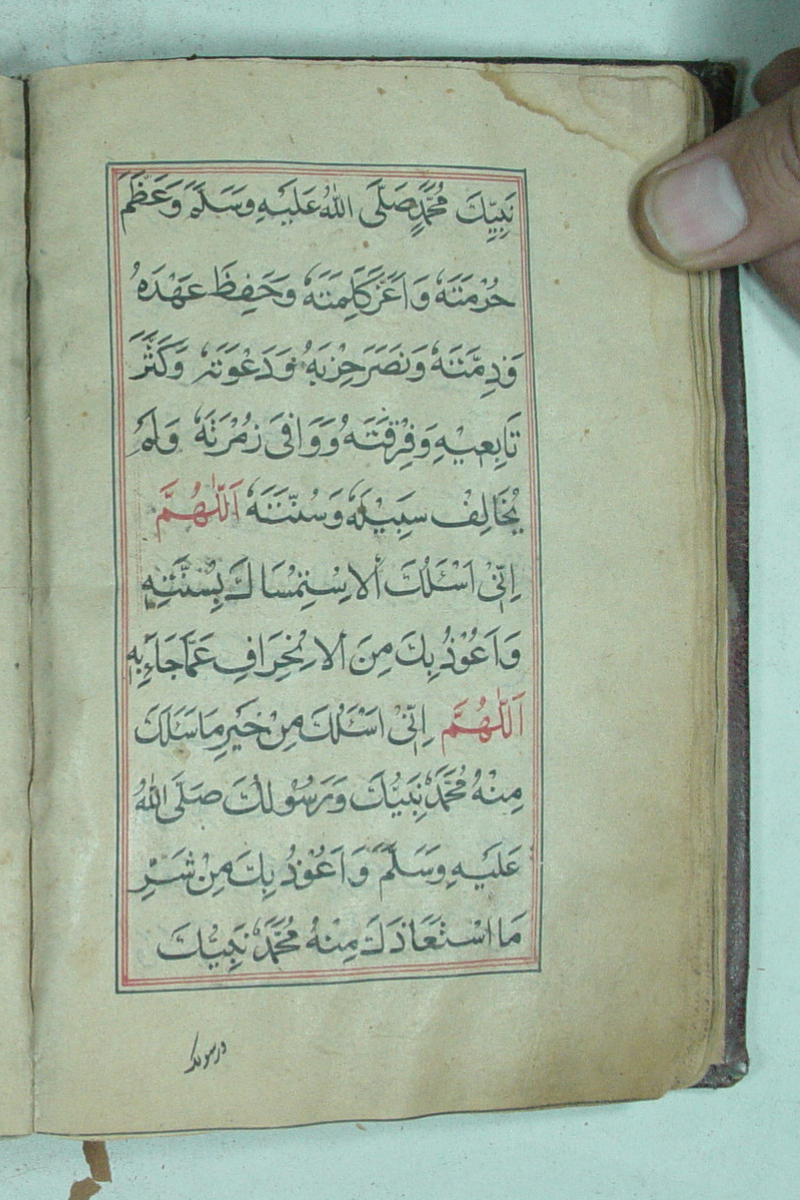 نَبِيِّكَ مُحَمَّدٍ صَلَّى اللهُ عَلَيْهِ وَسَلَّمَ وَعَظَّمَ
حُرْمَتَهُ وَاَعَزَّ كَلِمَتَهُ وَحَفِظَ عَهْدَهُ
وَذِمَّتَهُ وَنَصَرَ حِزْبَهُ وَدَعْوَتَهُ وَكَثَّرَ
تَابِعِيْهِ وَفِرْقَتَهُ وَوَافَى زُمْرَتَهُ وَلَمْ
يُخَالِفْ سَبِيْلَهُ وَسُنَّتَهُ اَللّٰهُمَّ
اِنِّىْ اَسْئَلُكَ الْاِسْتِمْسَاكَ بِسُنَّتِهِ
وَاَعُوْذُ بِكَ مِنَ الْاِنْحِرَافِ عَمَّا جَاءَ بِهِ
اَللّٰهُمَّ اِنِّىْ اَسْئَلُكَ مِنْ خَيْرِ مَا سَئَلَكَ
مِنْهُ مُحَمَّدٌ نَبِيُّكَ وَرَسُوْلُكَ صَلَّى اللهُ
عَلَيْهِ وَسَلَّمَ وَاَعُوْذُ بِكَ مِنْ شَرِّ
مَا اسْتَعَاذَكَ مِنْهُ مُحَمَّدٌ نَبِيُّكَ
ورسولك